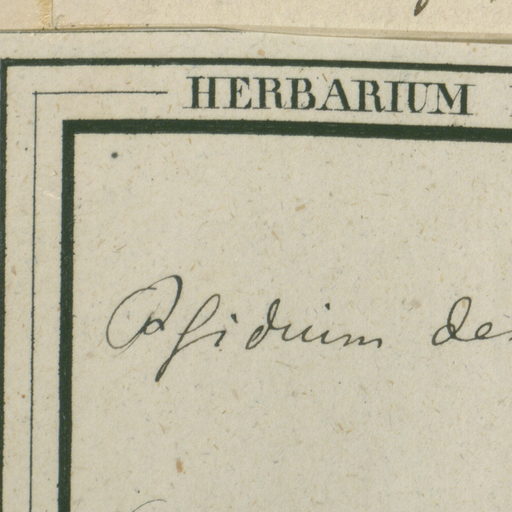 HERBARIUM
Psidium de